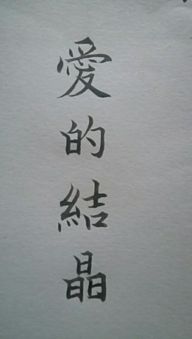 愛的結晶